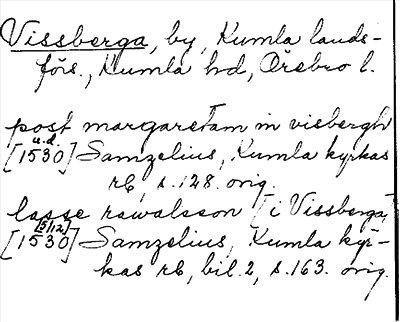 Vissberga, by, Kumla lands-
förs., Kumla hd, Örebro l.
post margaretam in visbergh
u.d.
[1530] Samzelius, Kumla kyrkas
rb, s. 128. orig.
lasse rawalsson [i Vissberga]
[5/12]
[1530] Samzelius, Kumla kyr-
kas rb, bil. 2, s. 163. orig.